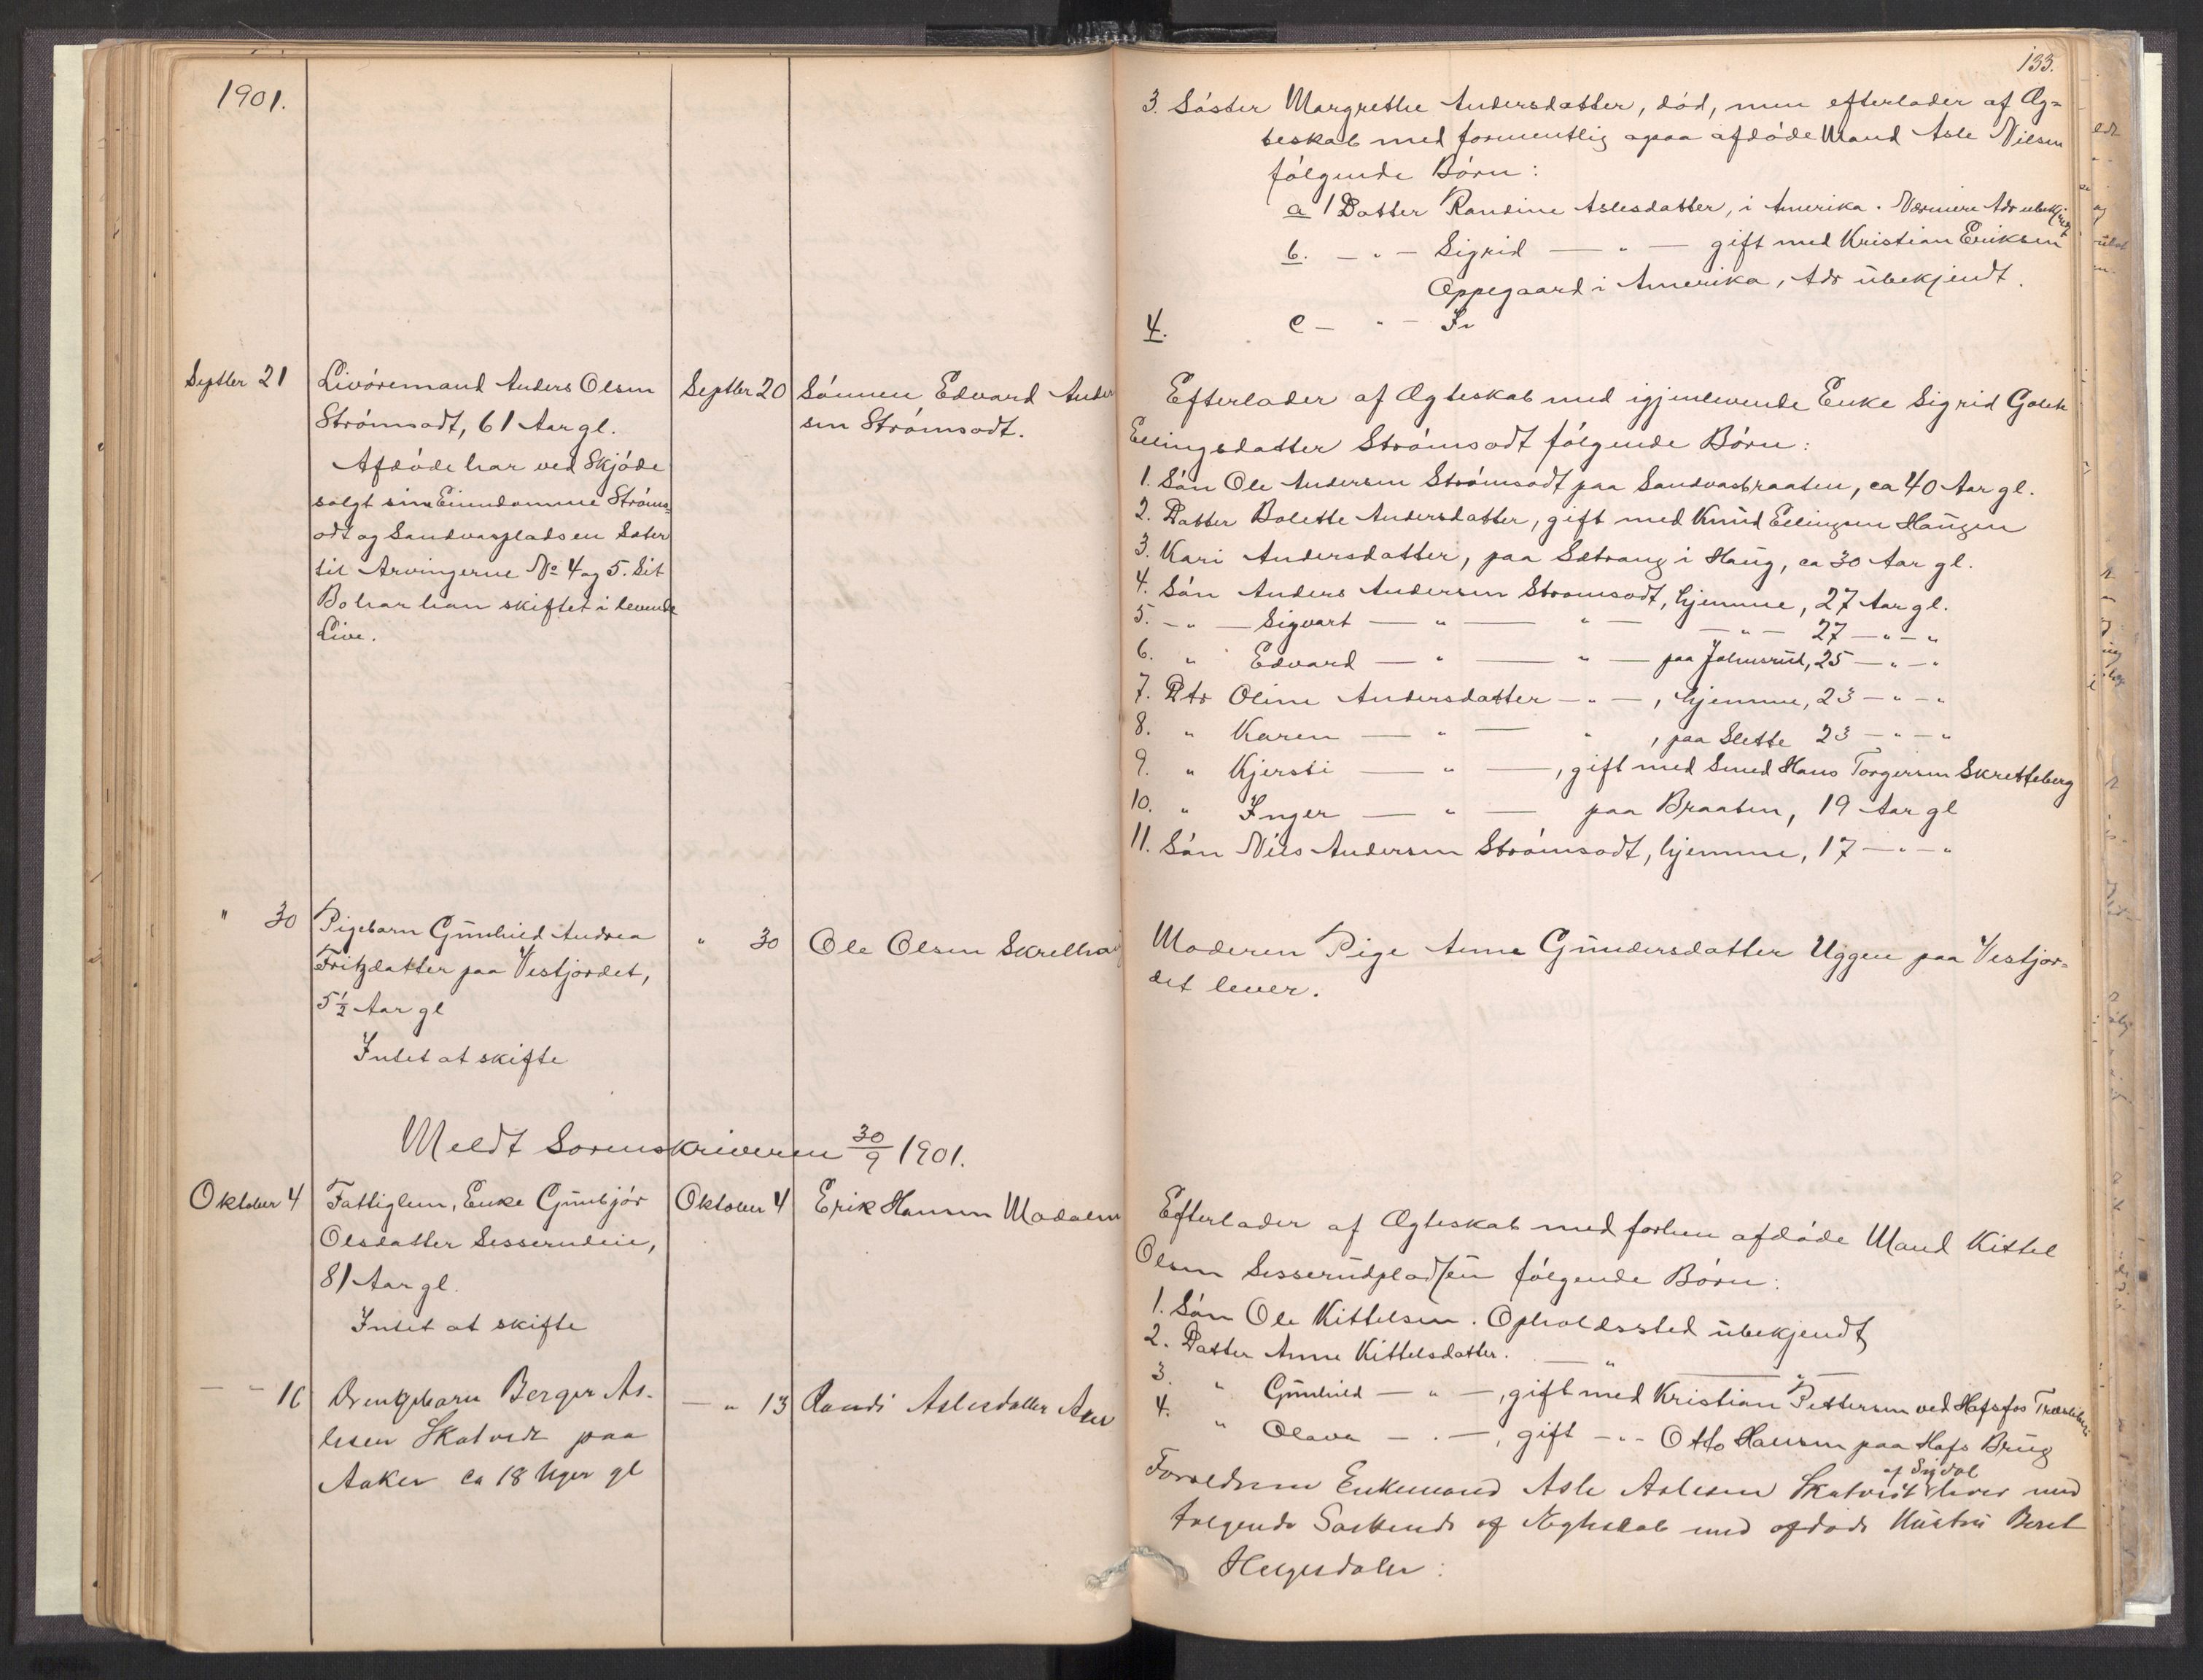 1901.
Septbr 21
Livøremand Anders Olsen
Strømsodt, 61 Aar gl.
Afdøde har ved Skjøde
solgt sine Eiendomme Strøms=
odt og Sandvaspladsen Sæter
til Arvingerne No 4 og 5. Sit
Bo har han skiftet i levende
Live.
Septbr 20
Sønnen Edvard Ander
sen Strømsodt.
" 30
Pigebarn Gunhild Andrea
Fritzdatter paa Vestjordet,
5½ Aar gl
Intet at skifte
" 30
Ole Olsen Skrelhaug
Meldt Sorenskriveren 30/9 1901.
Oktober 4
Fattiglem, Enke Gunbjør
Olsdatter Sesserudeie,
81 Aar gl.
Intet at skifte
Oktober 4
Erik Hansen Modalen
— " 16
Drengebarn Berger As-
lesen Skatvedt paa
Aaker ca 18 Uger gl
— " 13
Randi Aslesdatter Aker
133.
3. Søster Margrethe Andersdatter, død, men efterlader af Æg=
teskab med formentlig ogsaa afdøde Mand Asle Nilsen
følgende Børn:
a 1 Datter Randine Aslesdatter, i Amerika. Nærmere Adr ubekjendt
b. — " — Sigrid — " — gift med Kristian Eriksen
Oppegaard i Amerika, Adr ubekjendt.
4. c — " —
Efterlader af Ægteskab med igjenlevende Enke Sigrid Golette
Ellingsdatter Strømsodt følgende Børn:
1. Søn Ole Andersen Strømsodt paa Sandvasbraaten, ca 40 Aar gl.
2. Datter Bolette Andersdatter, gift med Knud Ellingsen Haugen
3. Kari Andersdatter, paa Sætrang i Haug, ca 30 Aar gl.
4. Søn Anders Andersen Stromsodt, hjemme, 27 Aar gl.
5. — " — Sigvart — " — " — — " — 27 — " — "
6. " Edvard — " — " — paa Johnsrud, 25 — " — "
7. Dtr Oline Andersdatter — " —, hjemme, 23 — " — "
8. " Karen — " — " , paa Slette 23 — " — "
9. " Kjersti — " —, gift med Smed Hans Torgersen Skretteberg
10. " Inger — " — paa Braaten, 19 Aar gl
11. Søn Nils Andersen Strømsodt, hjemme, 17 — " — "
Moderen Pige Anne Gundersdatter Uggen paa Vestjor=
det lever.
Efterlader af Ægteskab med forhen afdøde Mand Kittel
Olsen Sesserudpladsen følgende Børn:
1. Søn Ole Kittelsen. Opholdssted ubekjendt
2. Datter Anne Kittelsdatter. — " — " —
3. " Gunhild — " —, gift med Kristian Pettersen ved Hofsfos Træsliberi
4. " Olava — " —, gift — " — Otto Hansen paa Hofs Brug
Forældrene Enkemand Asle Aslesen Skatvedt af Sigdal lever med
følgende Søskende af Ægteskab med afdøde Hustru Beret
Helgesdatter: